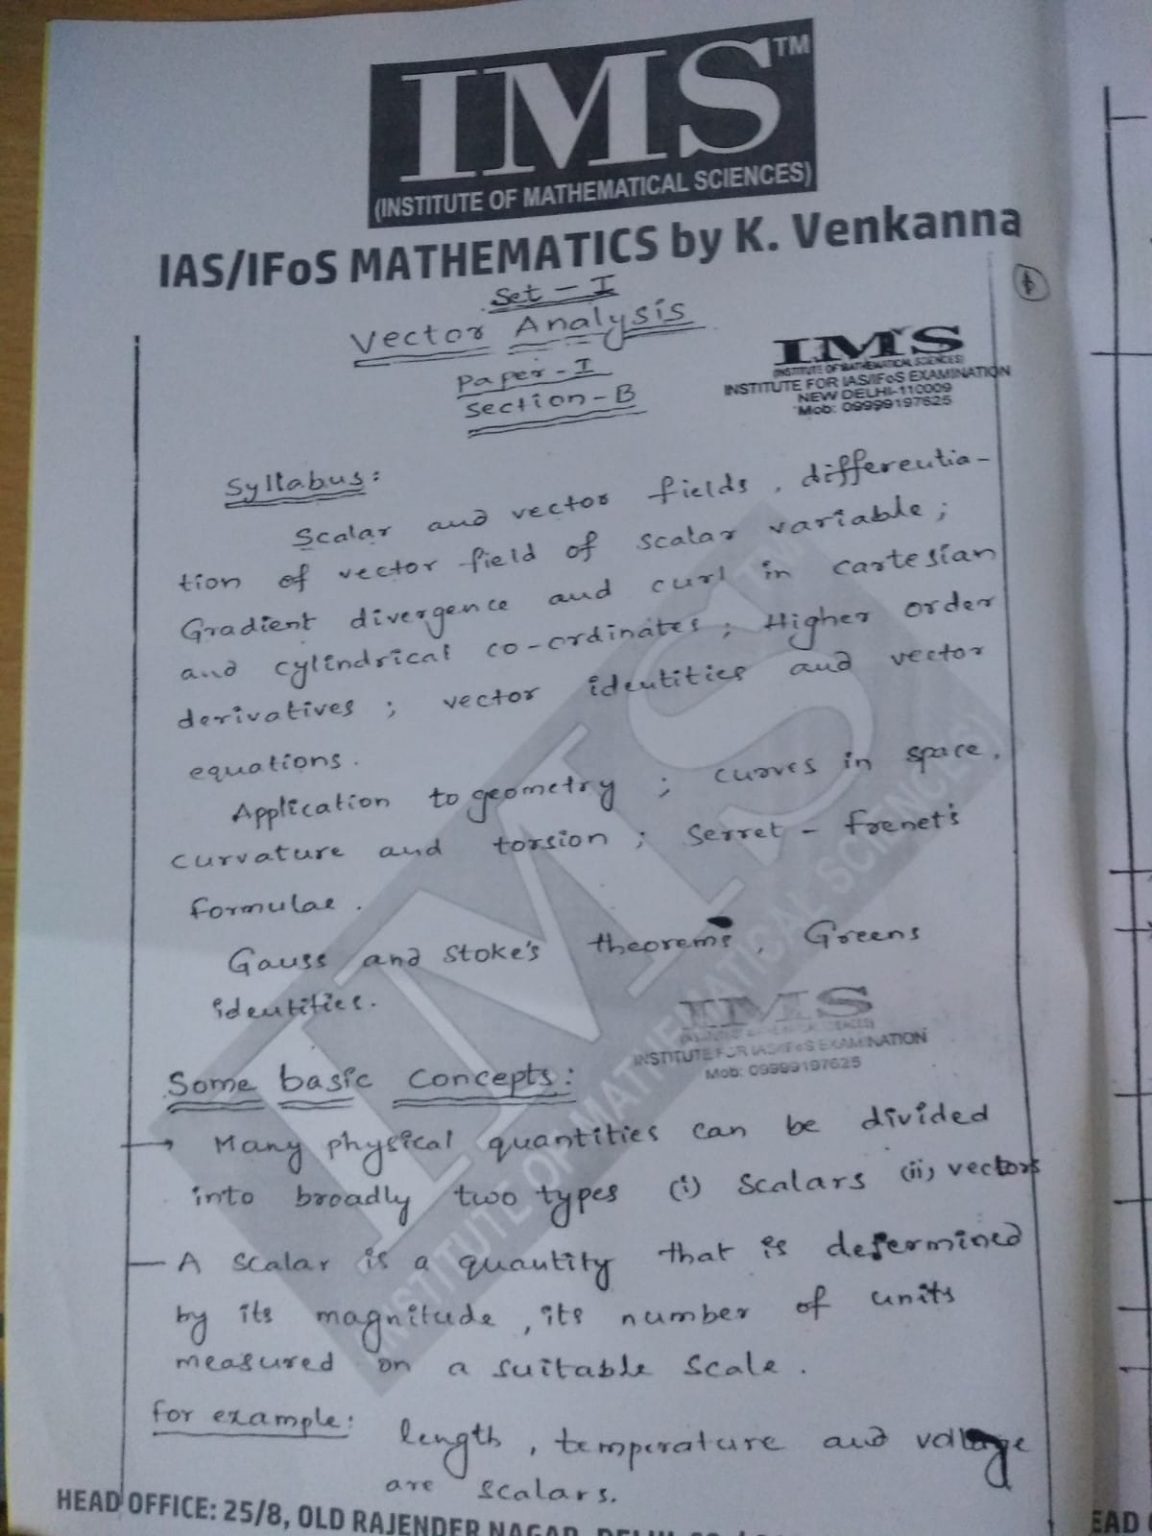 IMS™
(INSTITUTE OF MATHEMATICAL SCIENCES)
IAS/IFoS MATHEMATICS by K. Venkanna
Set - I
Vector Analysis
Paper - I
Section - B
IMS
(INSTITUTE OF MATHEMATICAL SCIENCES)
INSTITUTE FOR IAS/IFoS EXAMINATION
NEW DELHI-110009
Mob: 09999197625
Syllabus:
Scalar and vector fields, differentia-
tion of vector field of scalar variable;
Gradient divergence and curl in cartesian
and cylindrical co-ordinates; Higher order
derivatives; vector identities and vector
equations.
Application to geometry; curves in space,
curvature and torsion; Serret - Frenet's
formulae.
Gauss and Stoke's theorems, Greens
identities.
IMS
INSTITUTE FOR IAS/IFoS EXAMINATION
Mob: 09999197625
Some basic concepts:
→ Many physical quantities can be divided
into broadly two types (i) scalars (ii) vectors
— A scalar is a quantity that is determined
by its magnitude, its number of units
measured on a suitable scale.
for example: length, temperature and voltage
are scalars.
IMS
INSTITUTE OF MATHEMATICAL SCIENCES)
HEAD OFFICE: 25/8, OLD RAJENDER NAGAR,
EAD